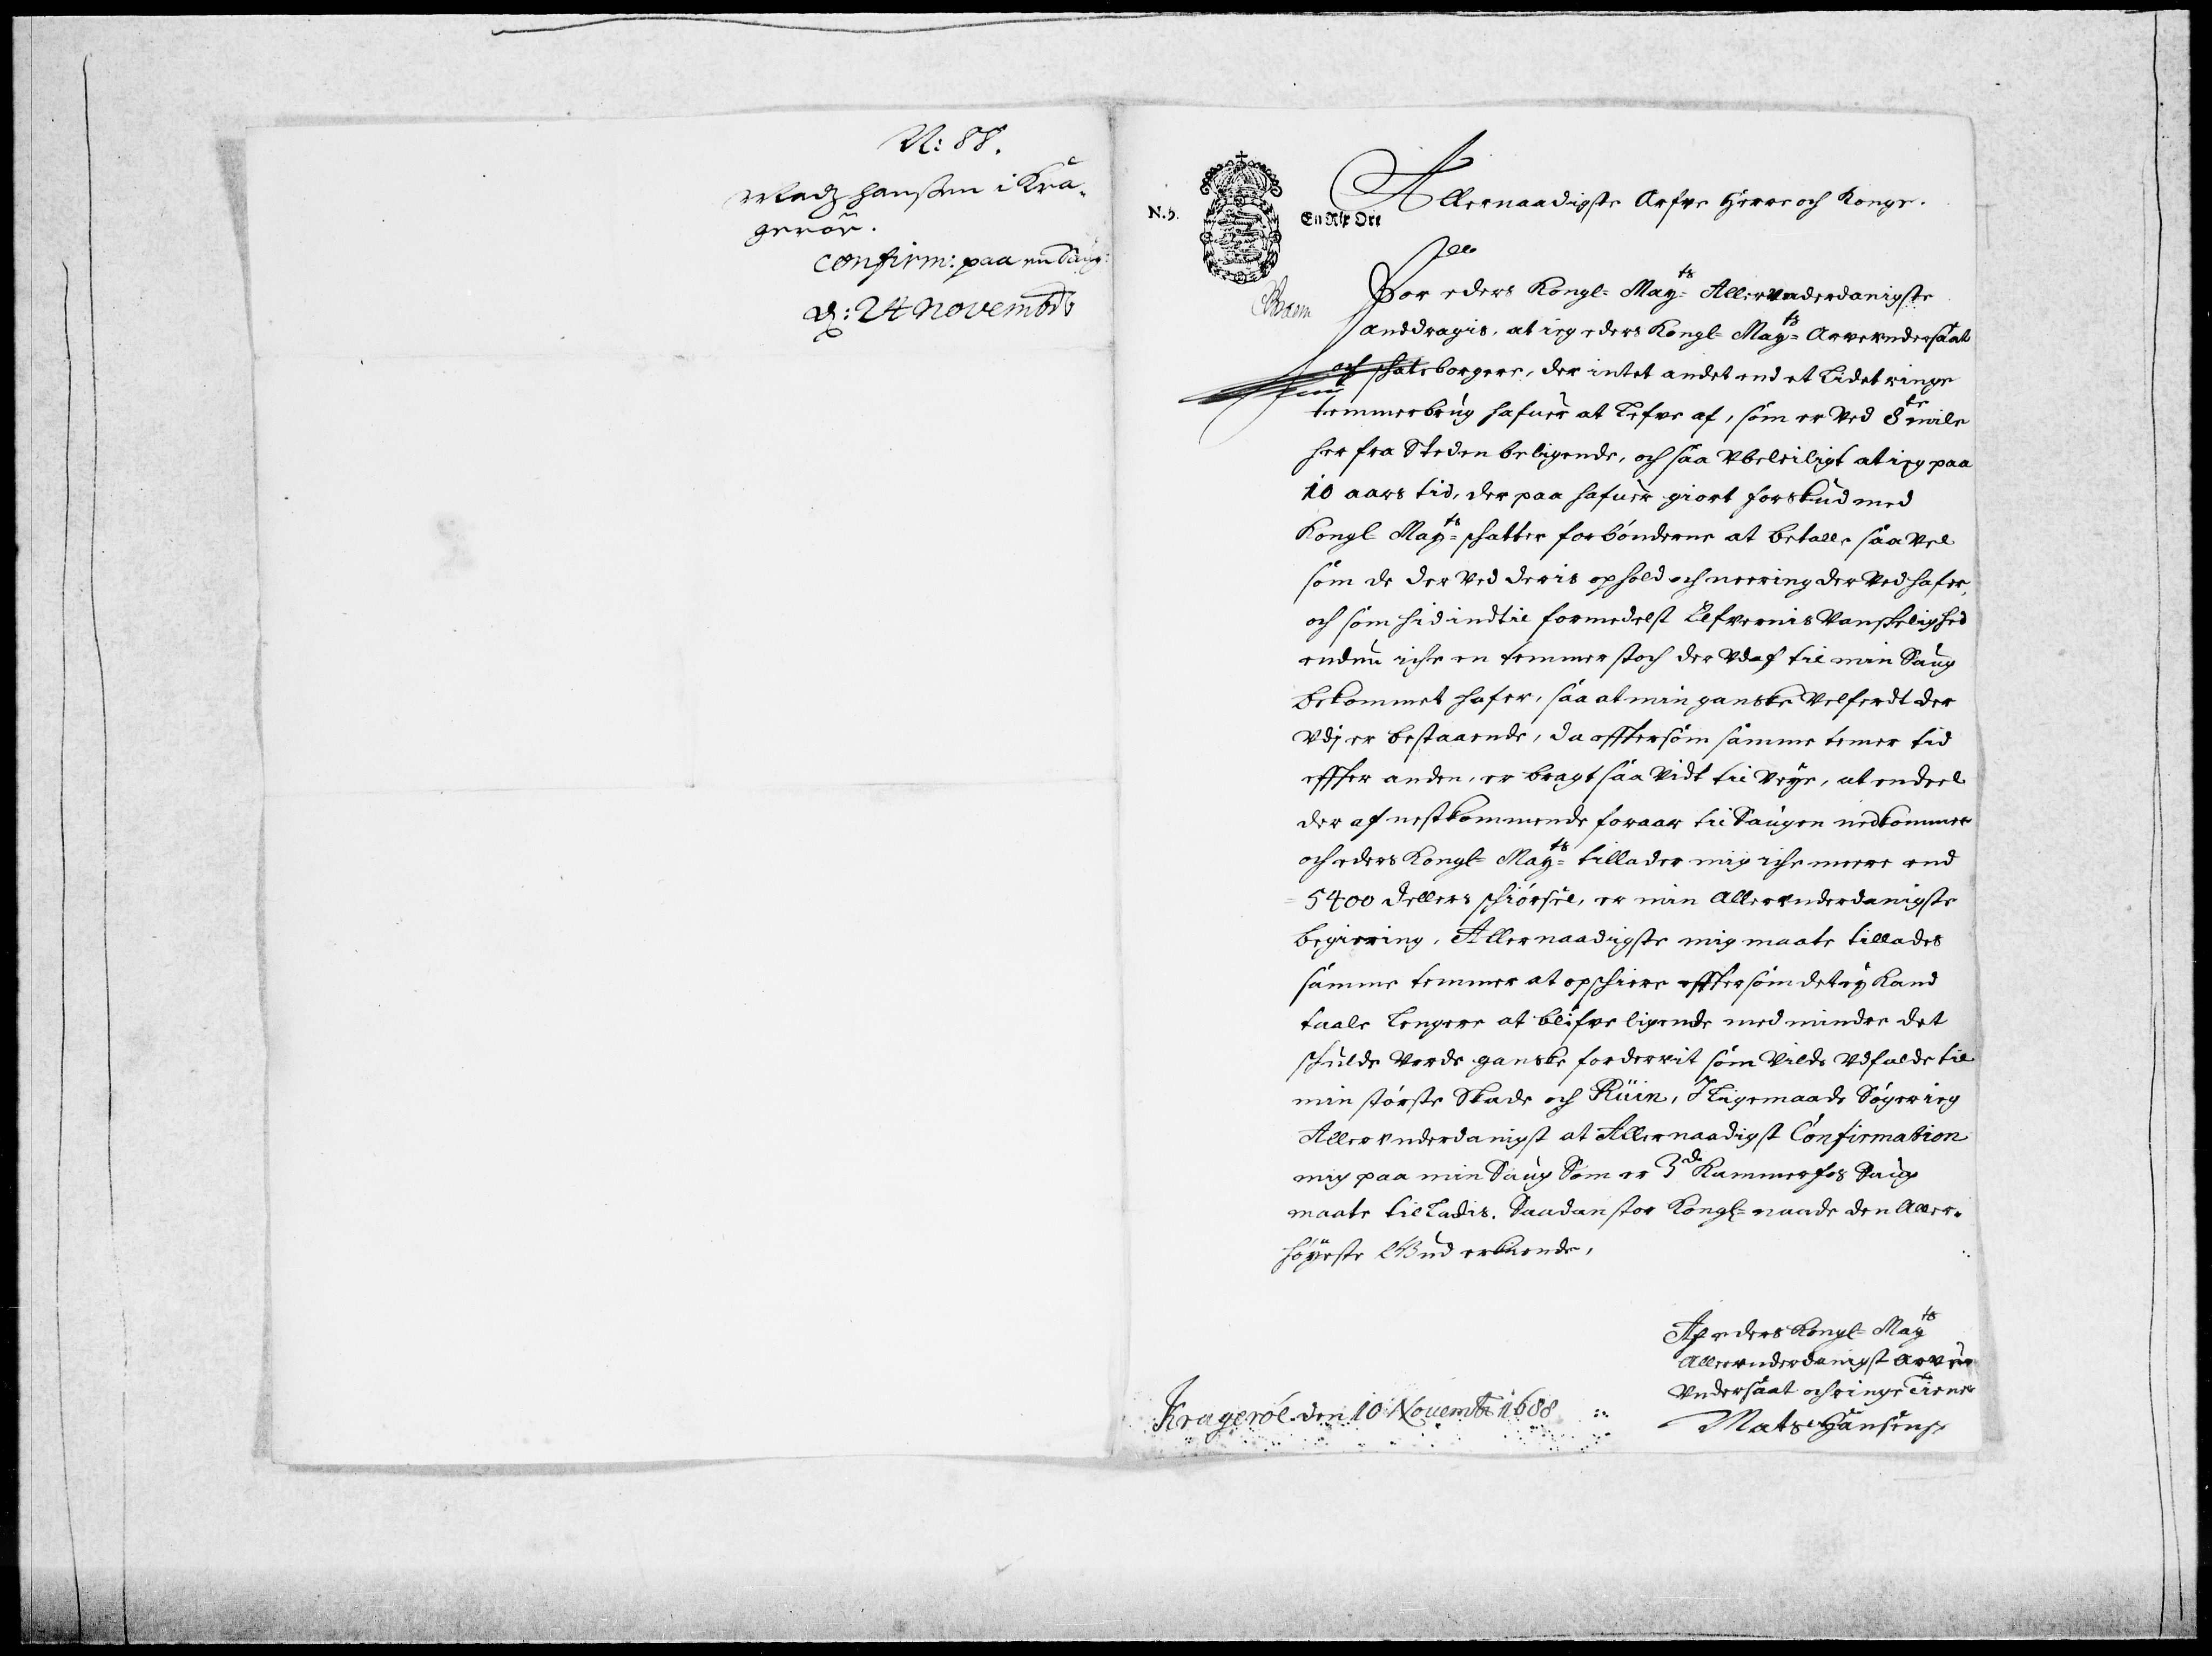 N: 88.
Madz hansen i Kra¬
gerøe.
confirm: paa en Saug:
d: 24 Novembr
N. 5.
En Rix Ort
Allernaadigste Arfve Herre och Konge.
For eders Kongl= May:ts Allerunderdanigste
anddragis, at ieg eders Kongl= May:ts Arveundersaat
och schatsborgere, der intet andet end et lidet ringe
temmerbrug hafuer at lefve af, som er ved 8te mile
her fra Steden beligende, och saa ubeleiligt at ieg paa
10 aars tid, der paa hafuer giort forskud med
Kongl= May:ts schatter for bønderne at betalle saa vel
som de der ved deris ophold och neering der ved hafer,
och som hid indtil formedelst Elfvernis vanskelighed
endnu iche en temmer stoch der udaf til min Saug
bekommet hafer, saa at min ganske velferdt der
udj er bestaaende, da efftersom samme temer tid
effter anden, er bragt saa vidt til veye, at endeel
der af nestkommende foraar til Saugen nedkommer
och eders Kongl= May:ts tillader mig iche meere end
5400 dellers schiørsel, er min allerunderdanigste
begiering, Allernaadigste mig maate tillades
samme temmer at opschiere efftersom det ey kand
taale lengere at blifve ligende med minder det
schulde verde ganske fordervit som vilde udfalde til
min største Skade och Ruin, Ifligemaade Søger ieg
Allerunderdanigst at Allernaadigst Confirmation
mig paa min Saug Som er 3de Kammerfos Saug
maate tilladis. Saadan stor Kongl= naade den Aller¬
høyeste Gud erkiende,
Af eders Kongl= May:ts
Allerunderdanigst arve
undersaat och ringe Tiener
Mats Hansen
Kragerøe den 10 Novembr 1688